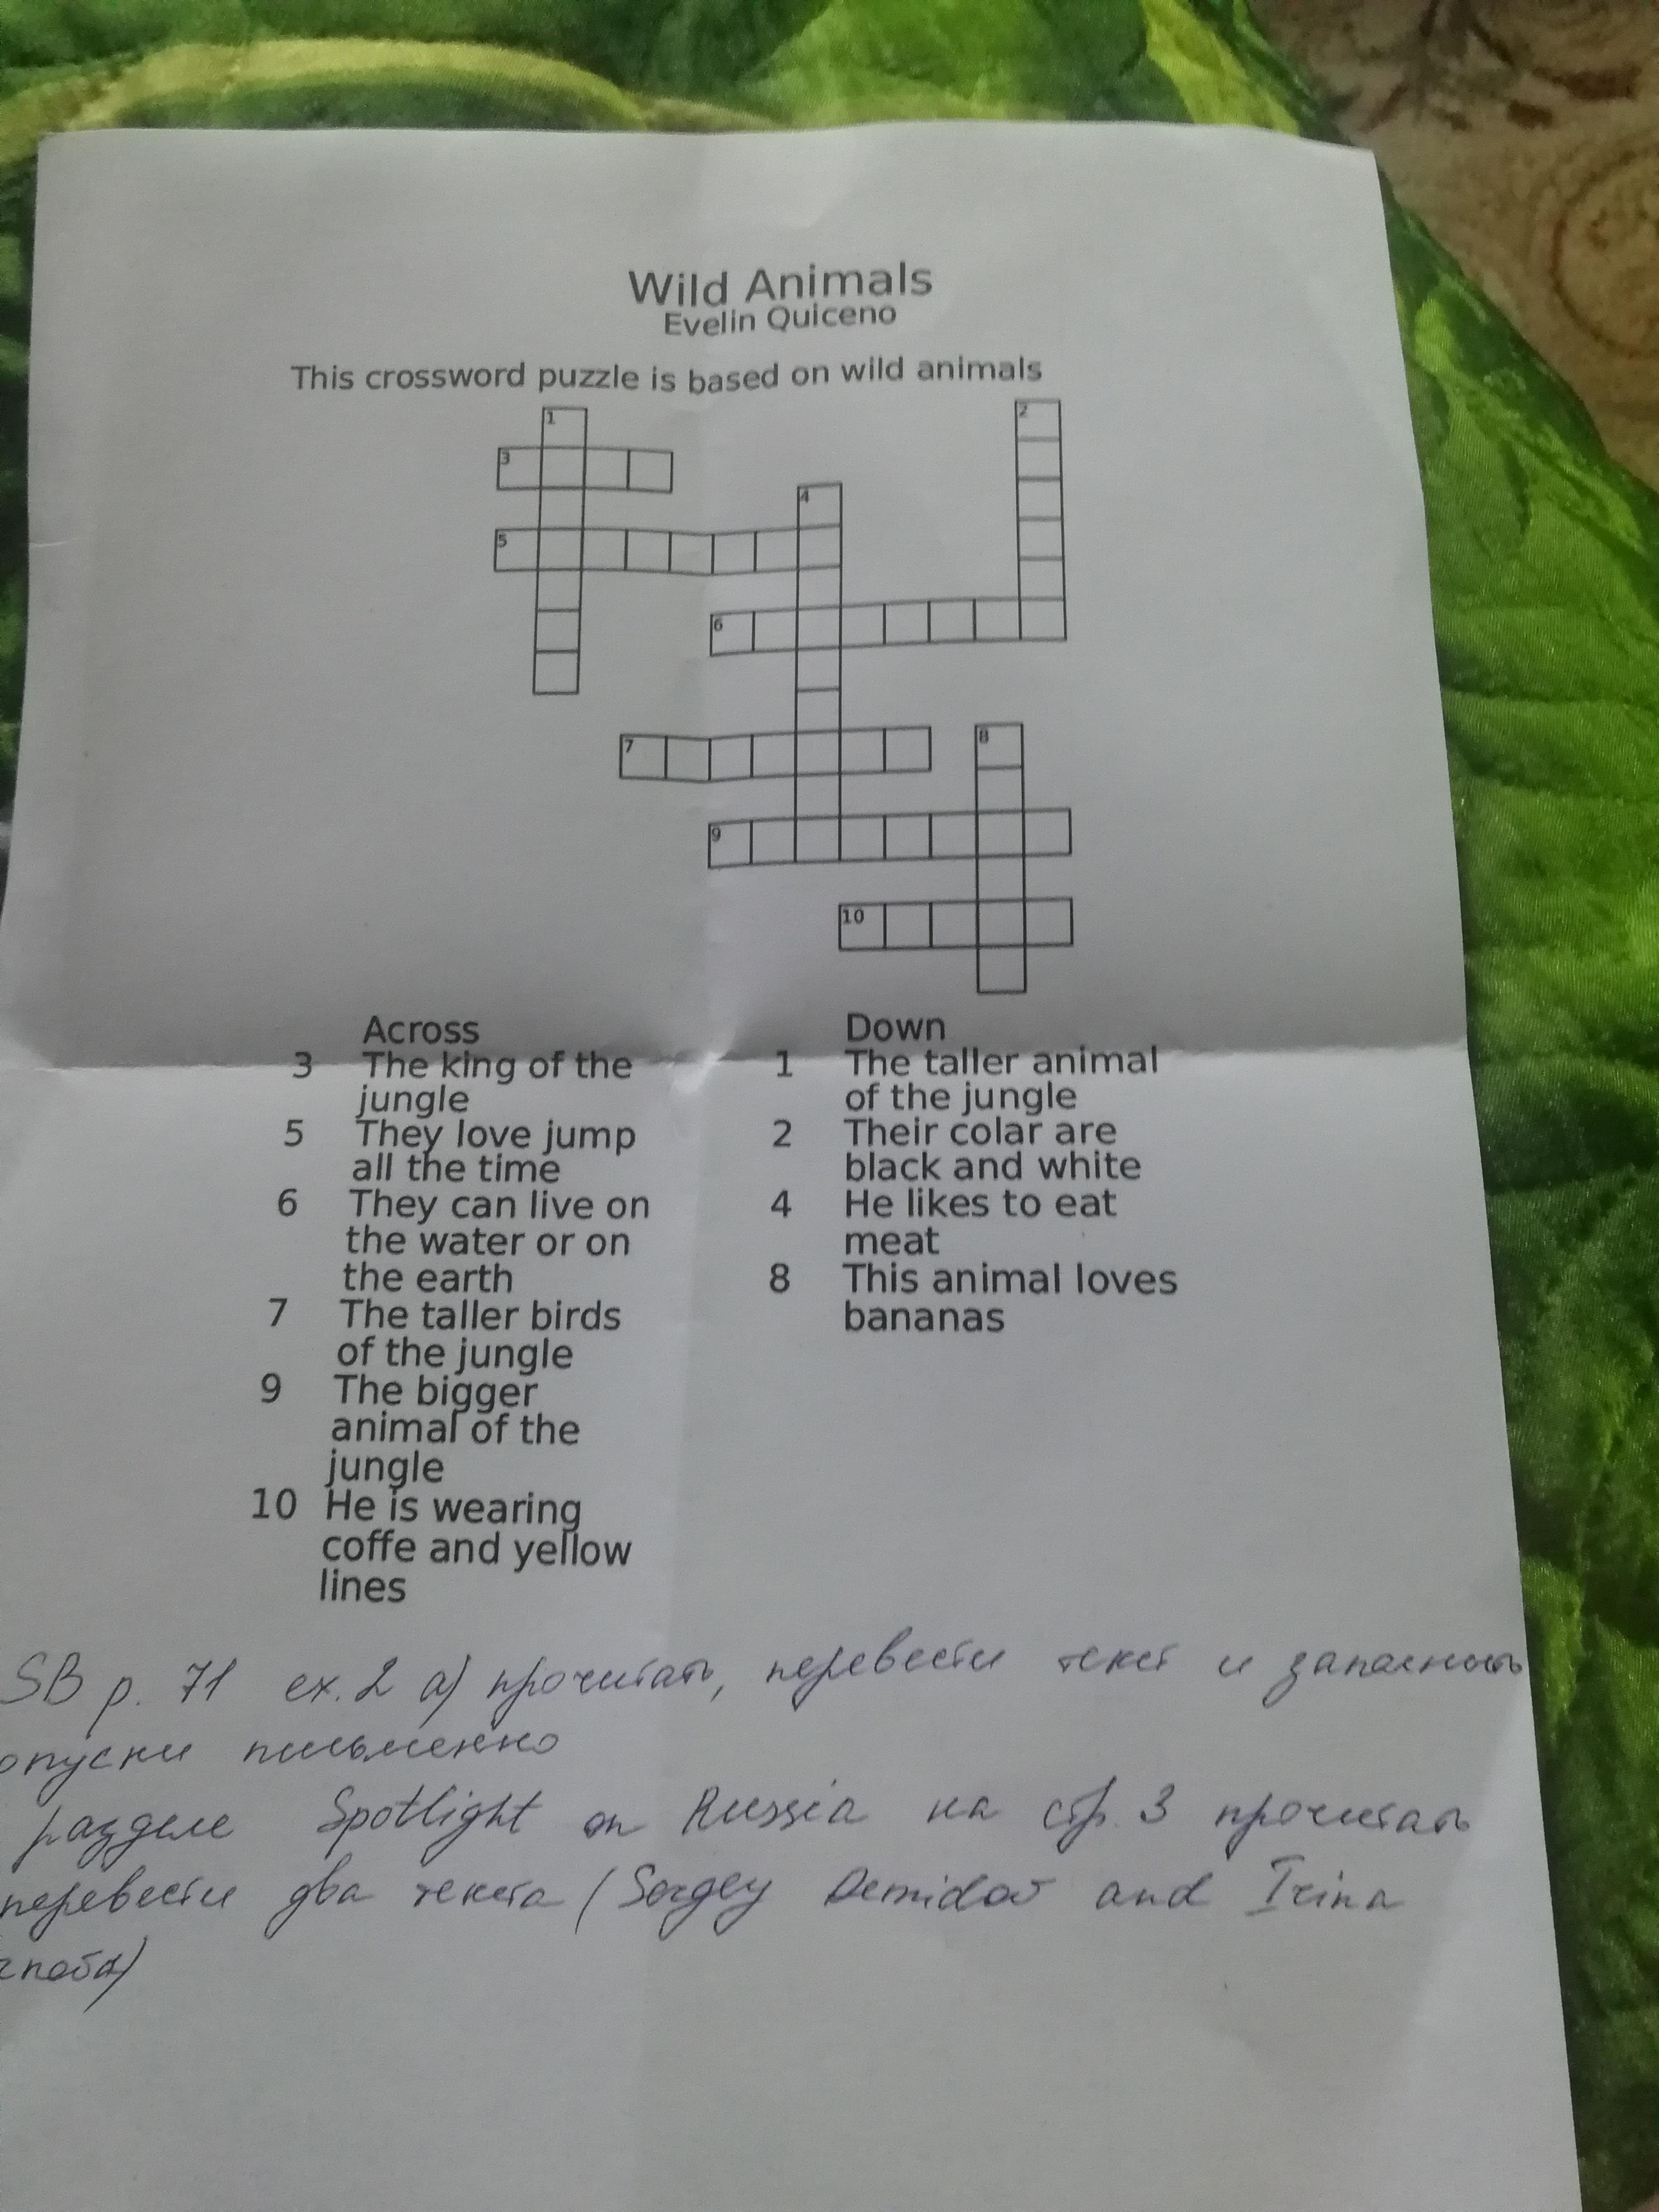 Wild Animals
Evelin Quiceno
This crossword puzzle is based on wild animals
1
2
3
4
5
6
7
8
9
10
Across
3 The king of the
jungle
5 They love jump
all the time
6 They can live on
the water or on
the earth
7 The taller birds
of the jungle
9 The bigger
animal of the
jungle
10 He is wearing
coffe and yellow
lines
Down
1 The taller animal
of the jungle
2 Their colar are
black and white
4 He likes to eat
meat
8 This animal loves
bananas
SB p. 71 ex. 2 a) прочитать, перевести текст и заполнить
опуски письменно
разделе Spotlight on Russia на стр. 3 прочитать
перевести два текста (Sergey Demidov and Irina